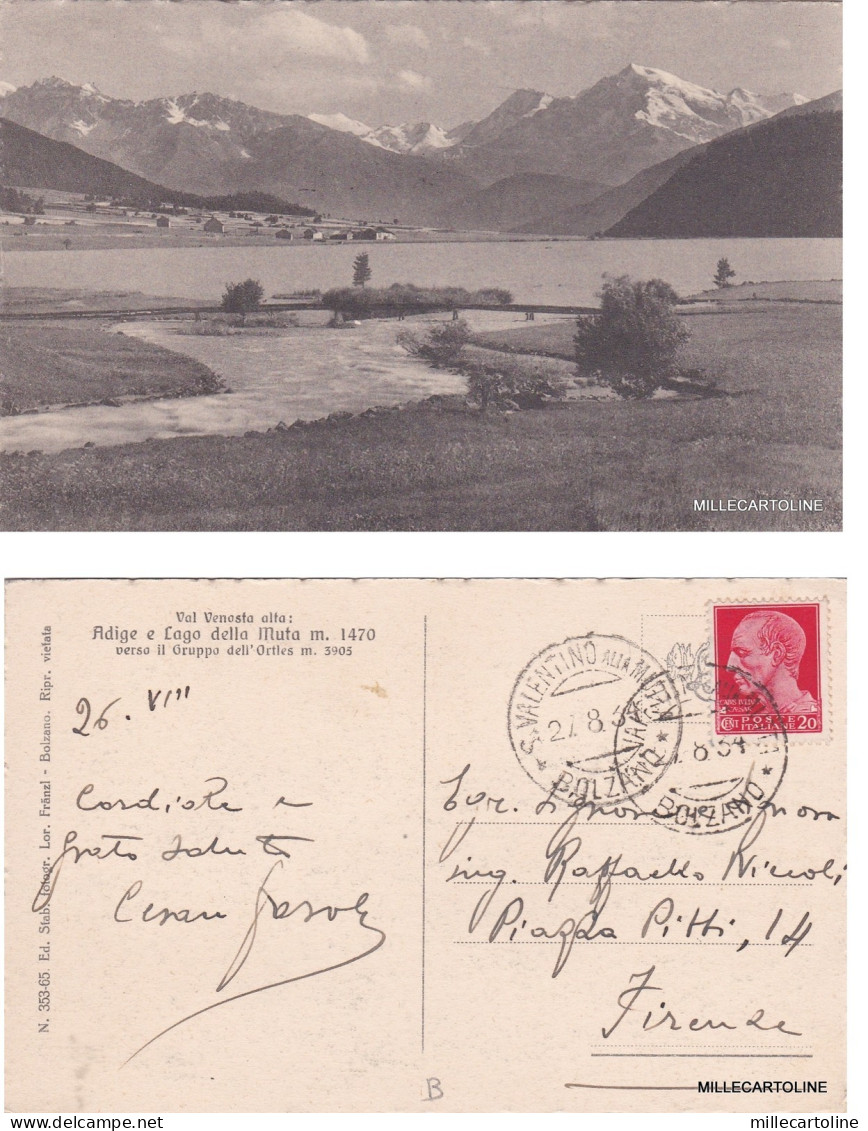 MILLECARTOLINE
Val Venosta alta:
Adige e Lago della Muta m. 1470
verso il Gruppo dell'Ortles m. 3905
N. 353-65. Ed. Stab. fotogr. Lor. Fränzl - Bolzano. Ripr. vietata
26. VIII
Cordiale e
grato saluto
Cesare
S. VALENTINO ALLA MUTA
27.8.34
BOLZANO
8 34
BOLZANO
POSTE
ITALIANE 20
Egr. Signore e Signora
ing. Raffaello Niccoli,
Piazza Pitti, 14
Firenze
B
MILLECARTOLINE
delcampe.net
millecartoline